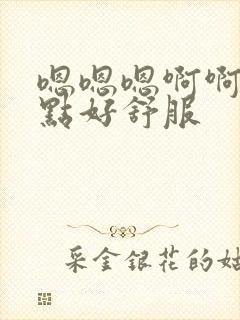 嗯嗯嗯啊啊
點好舒服
采金銀花的姑